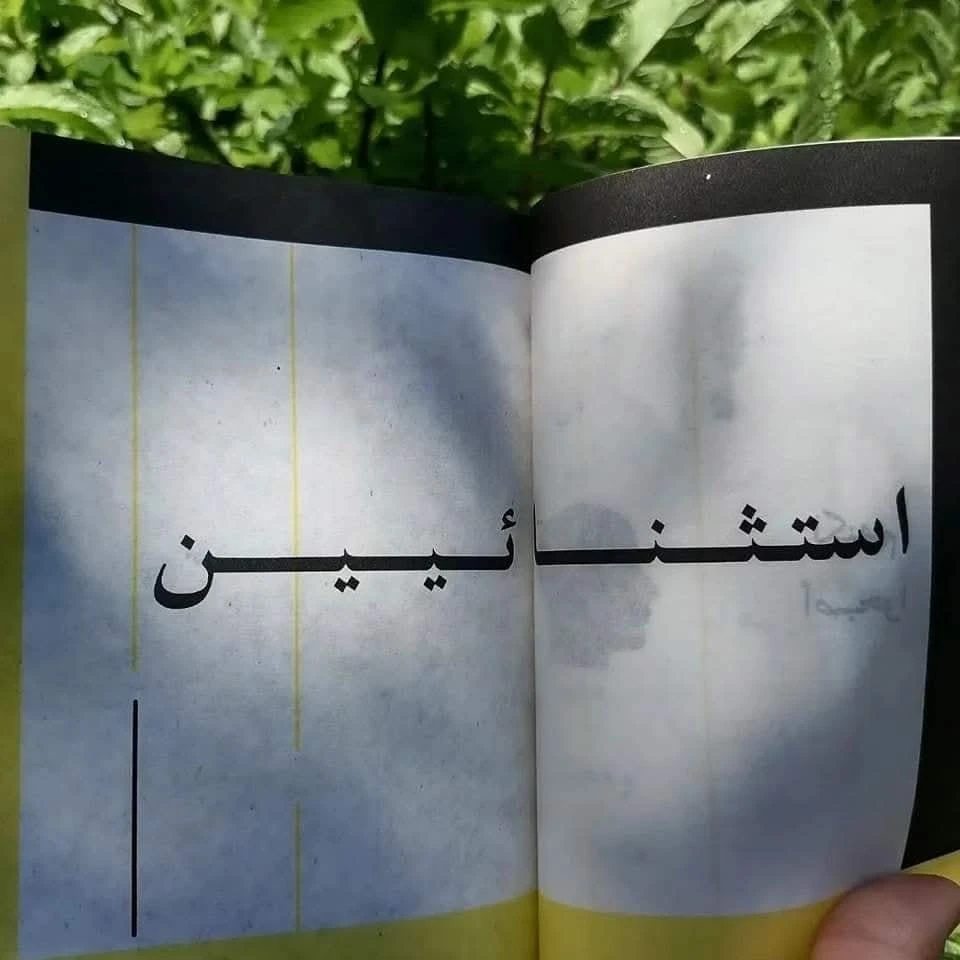 استثنائيين